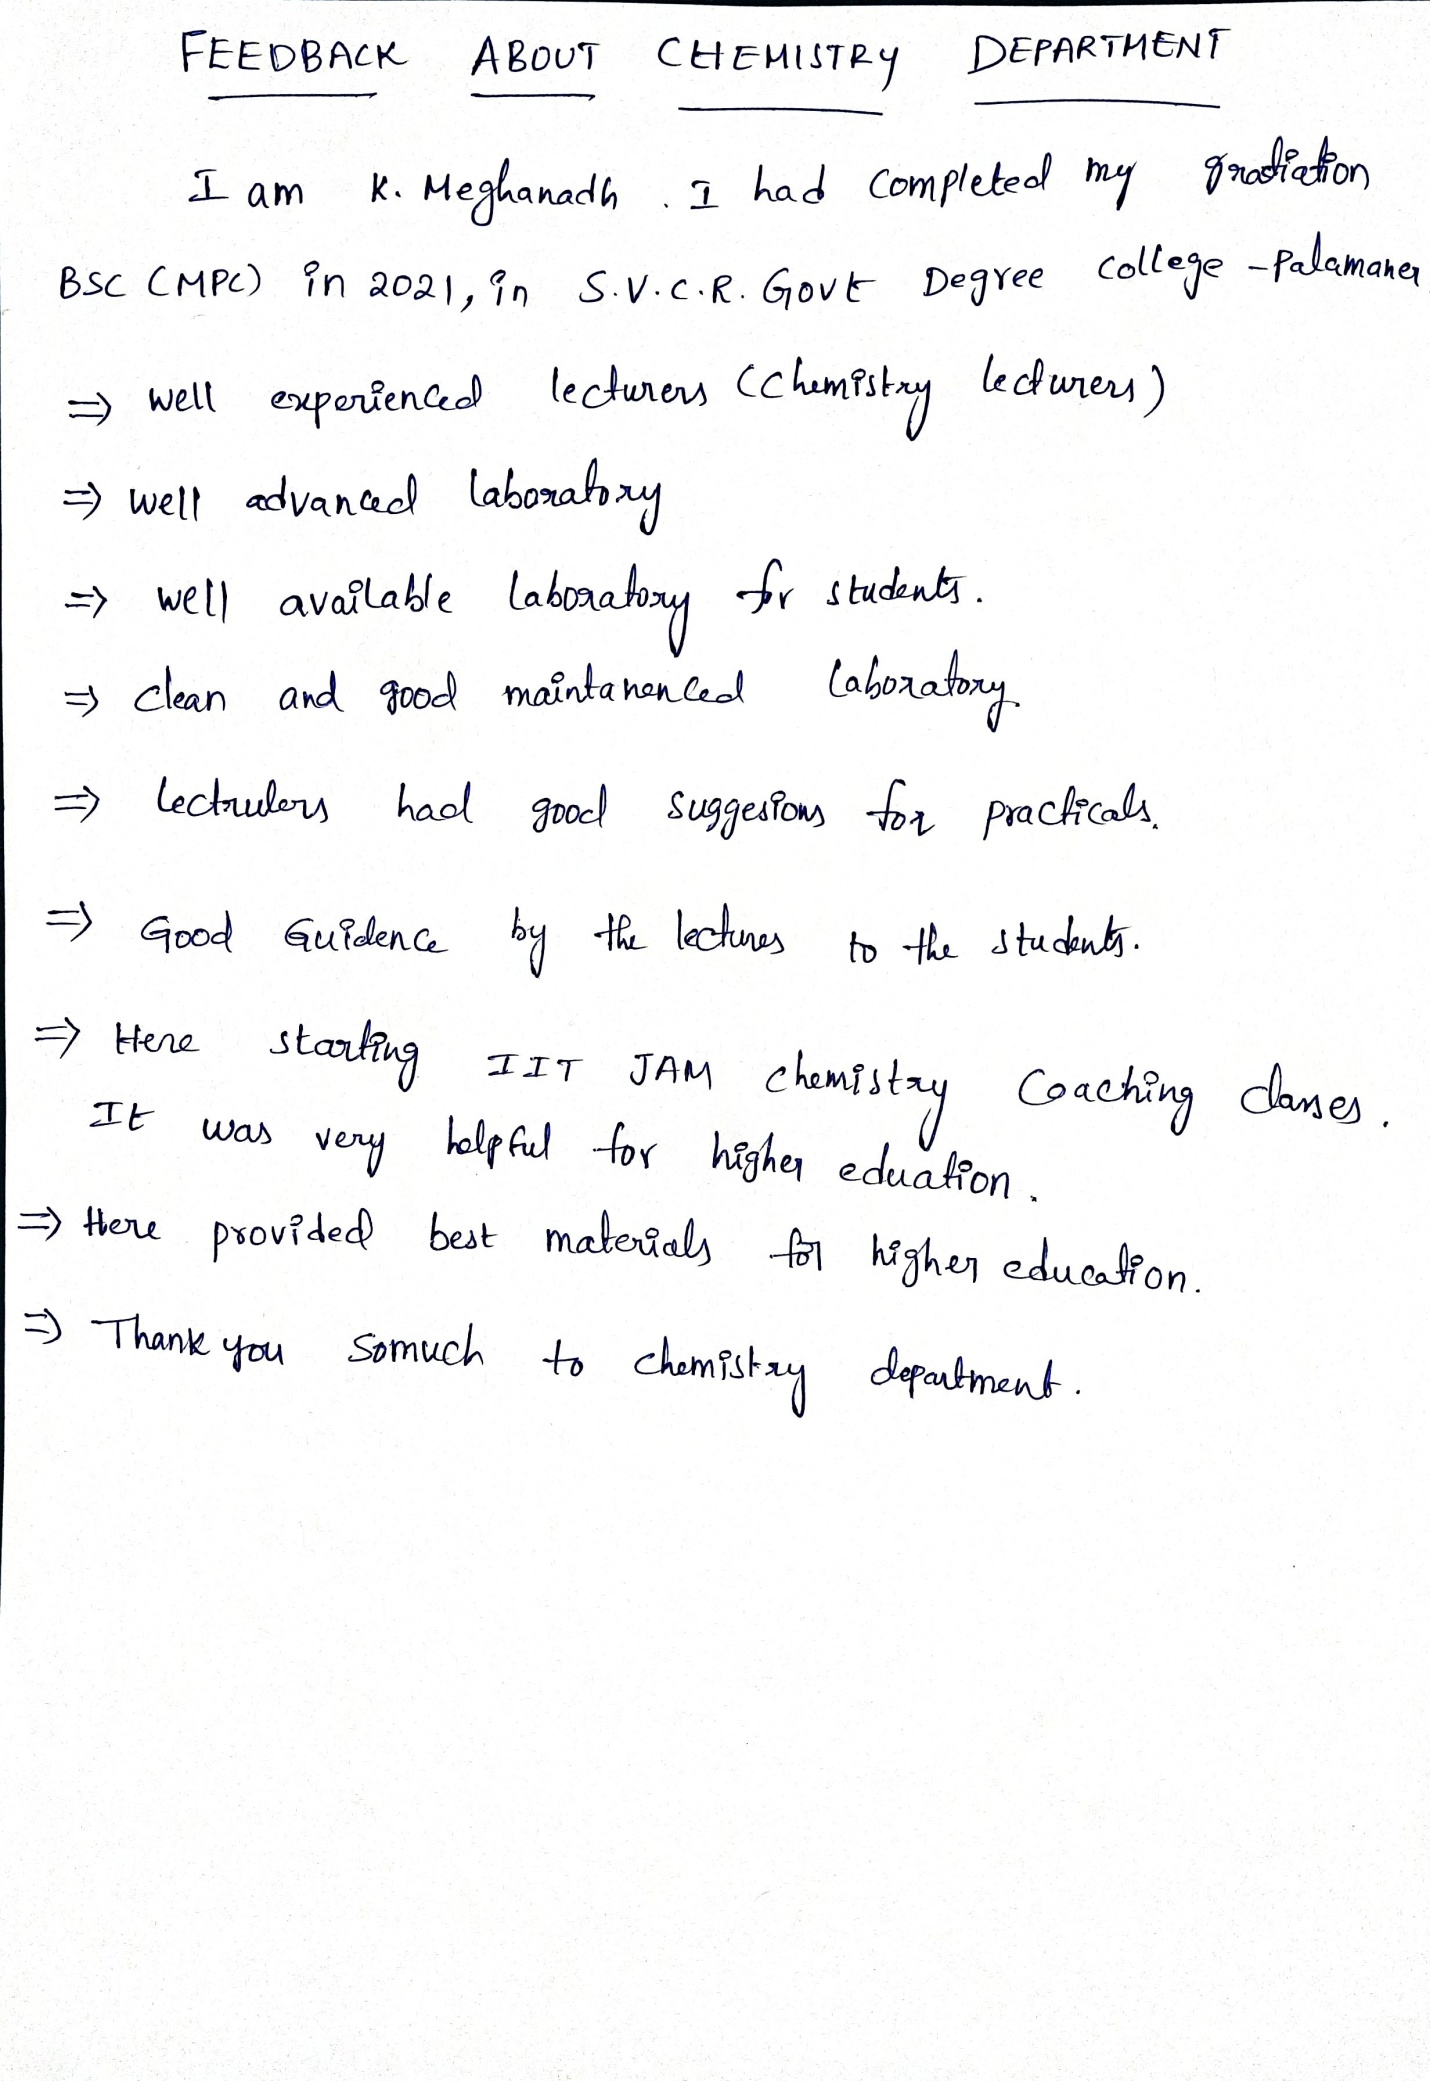 FEEDBACK ABOUT CHEMISTRY DEPARTMENT
I am K. Meghanadh . I had completed my gradiation
BSC (MPC) in 2021, in S.V.C.R. Govt Degree college - Palamaner
⇒ well experienced lecturers (Chemistry lecturers)
⇒ well advanced laboratory
⇒ well available laboratory for students.
⇒ clean and good maintanenced laboratory
⇒ lectrulers had good suggesions for practicals.
⇒ Good Guidence by the lectures to the students.
⇒ Here starting IIT JAM chemistry Coaching classes.
It was very helpful for higher eduation.
⇒ Here provided best materials for higher education.
⇒ Thank you somuch to chemistry department.